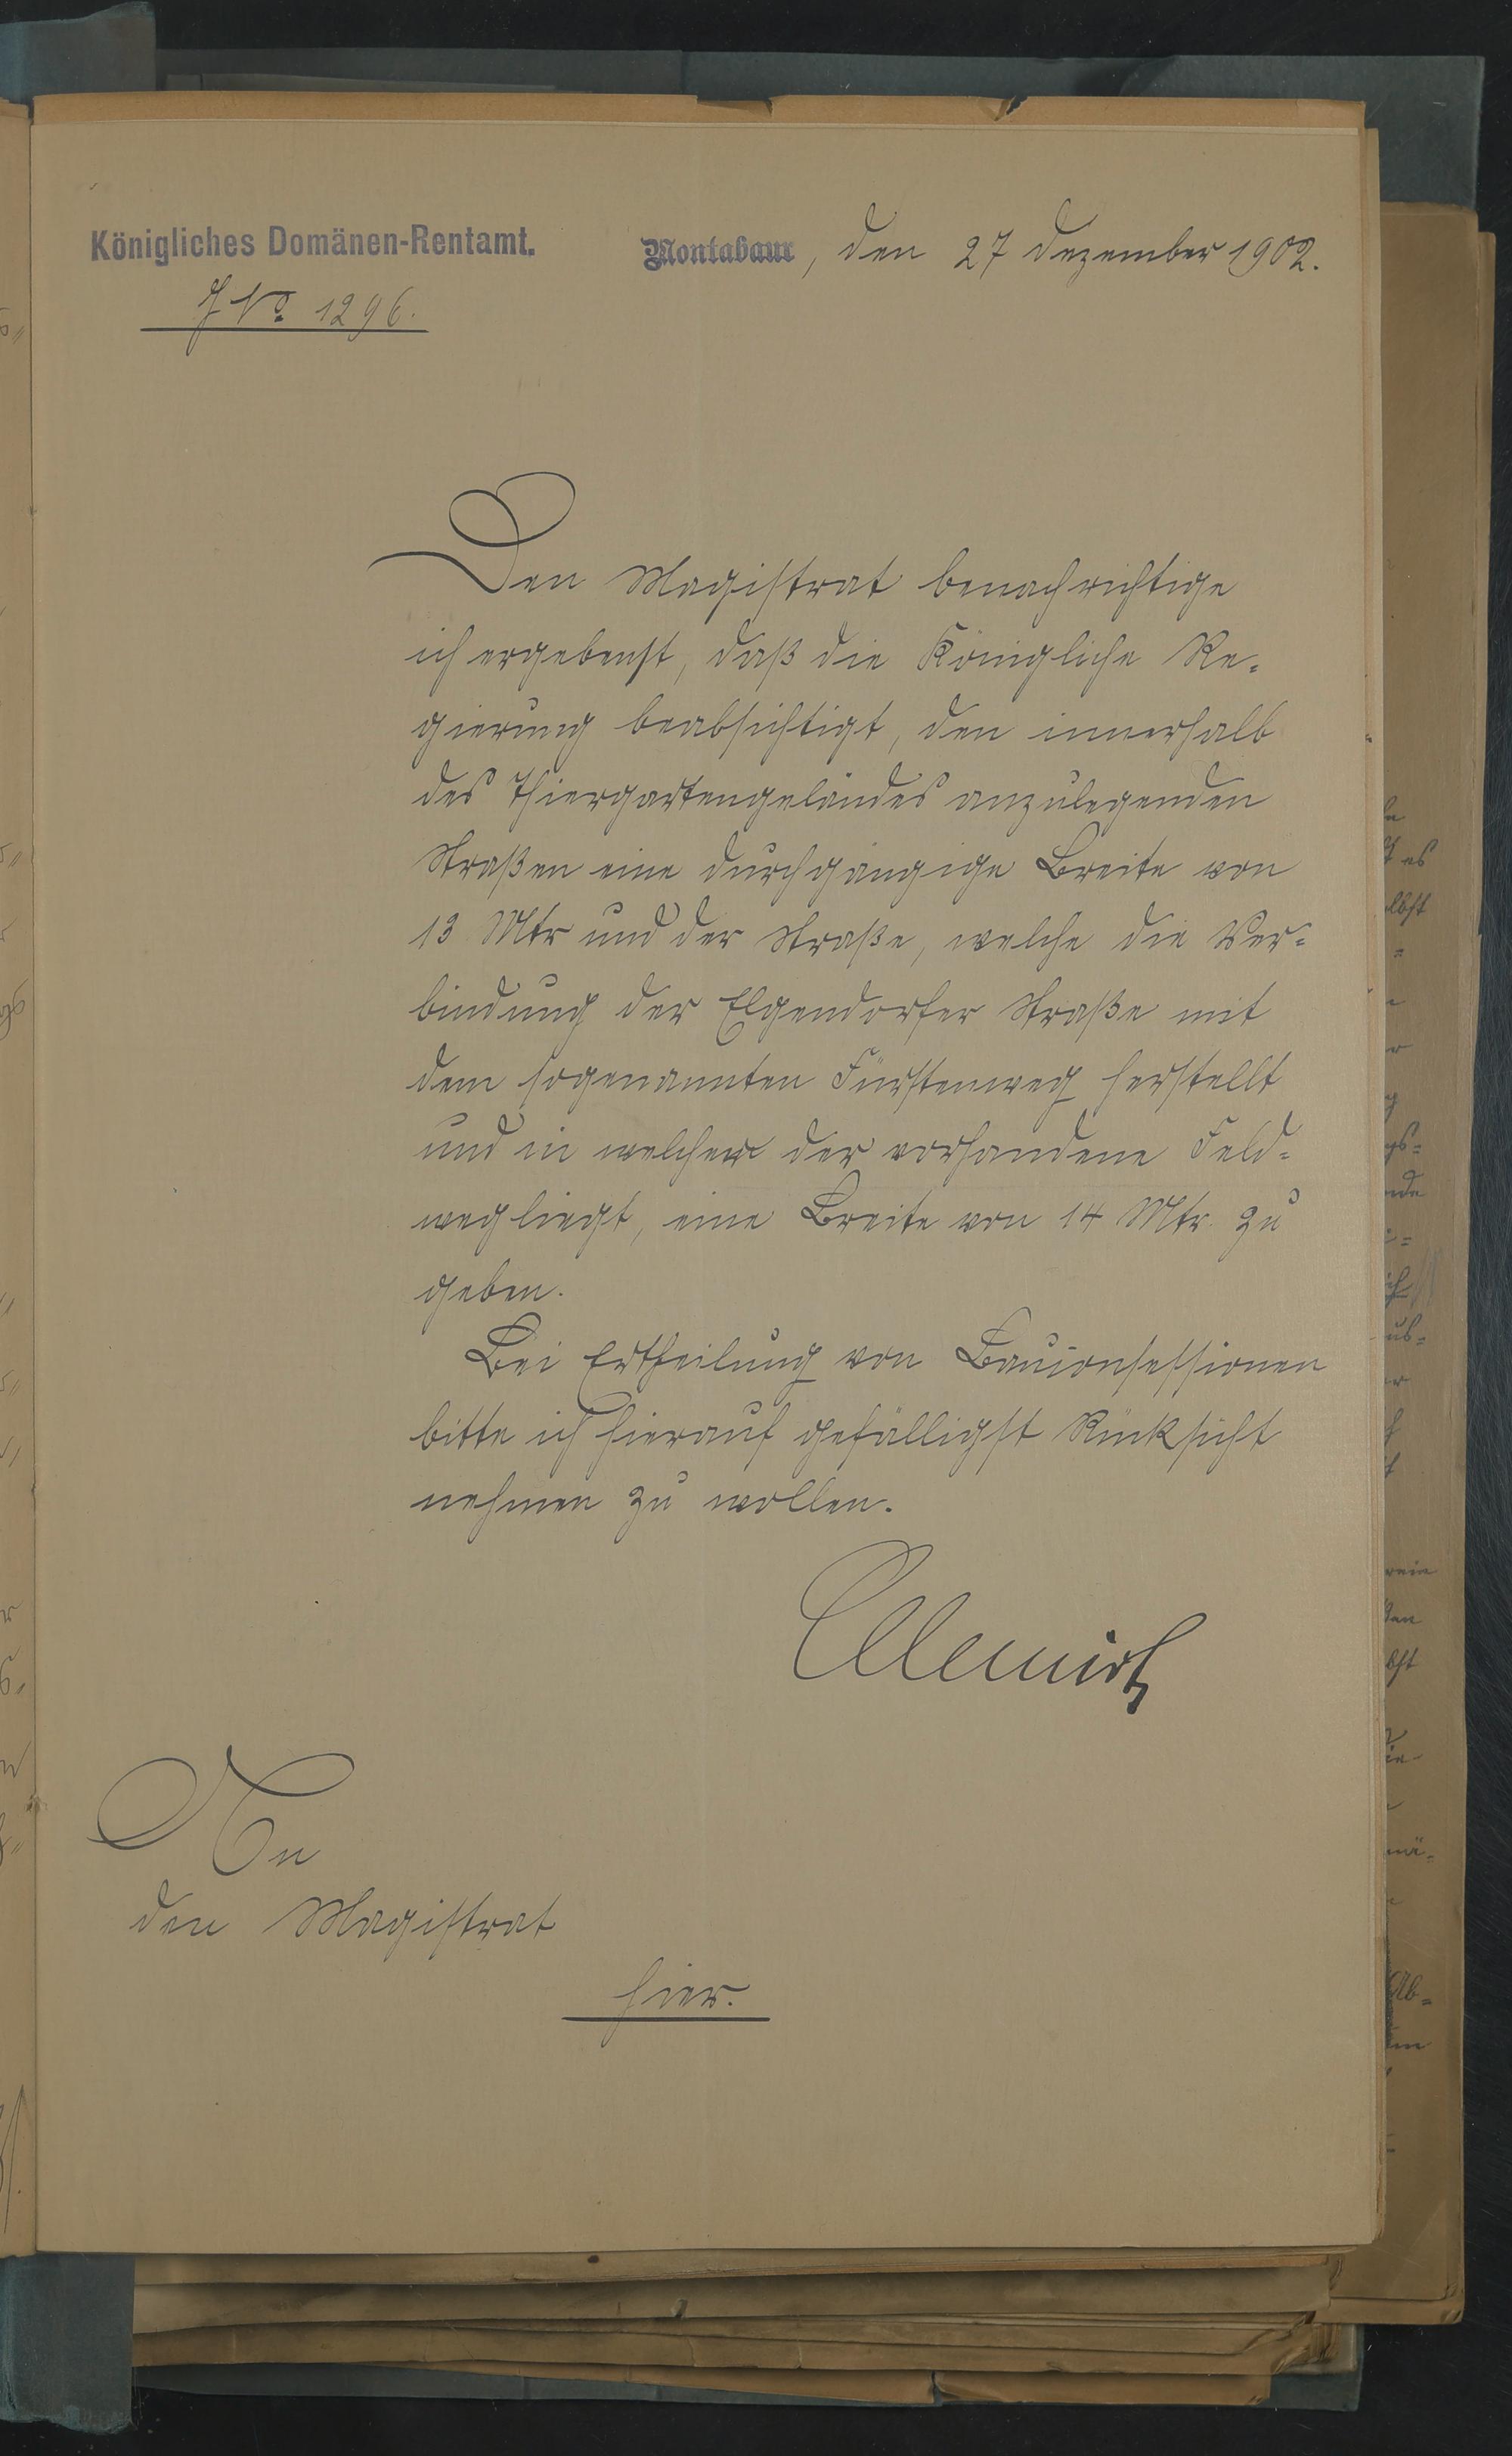 Königliches Domänen-Rentamt.
Montabaur, den 27 Dezember 1902.
J No 1296.
Den Magistrat benachrichtige
ich ergebenst, daß die Königliche Re-
gierung beabsichtigt, den innerhalb
des Thiergartengeländes anzulegenden
Straßen eine durchgängige Breite von
13 Mtr und der Straße, welche die Ver-
bindung der Elgendorfer Straße mit
dem sogenannten Fürstenweg herstellt
und in welcher der vorhandene Feld-
weg liegt, eine Breite von 14 Mtr. zu
geben.
Bei Ertheilung von Bauconsessionen
bitte ich hierauf gefälligst Rücksicht
nehmen zu wollen.
An
den Magistrat
hier.